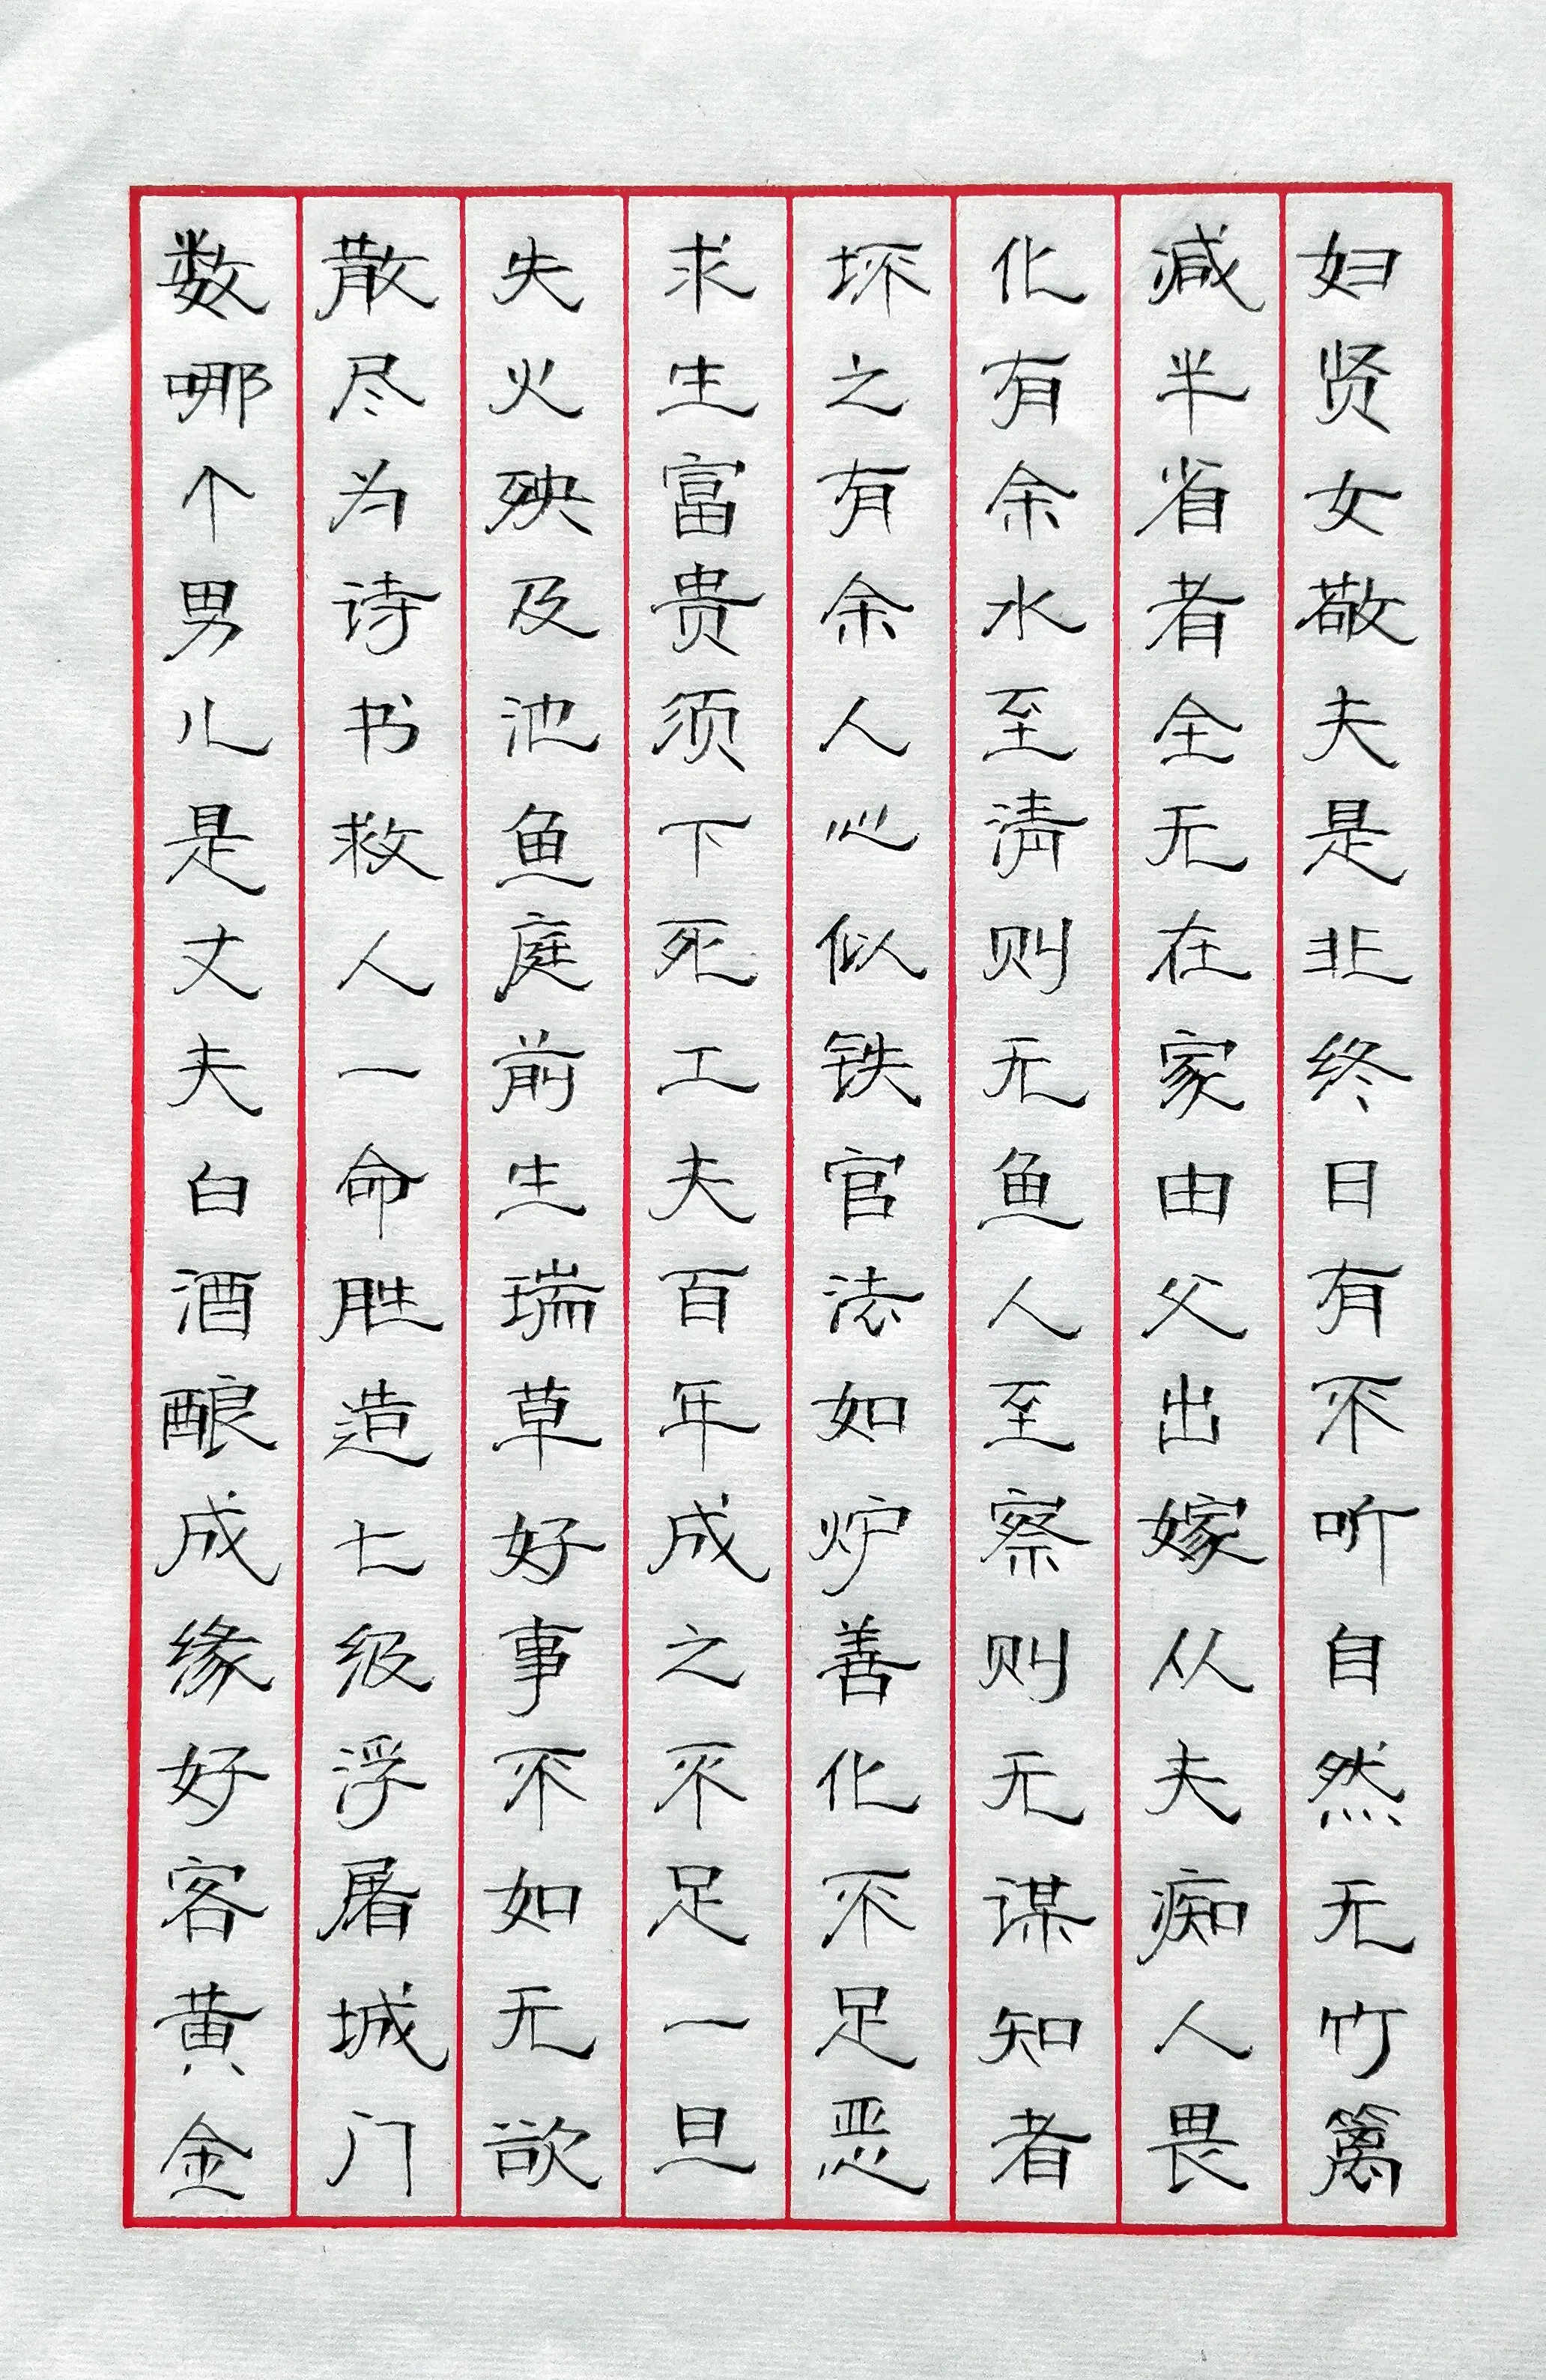 妇贤女敬夫是非终日有不听自然无竹篱
减半省者全无在家由父出嫁从夫痴人畏
化有余水至清则无鱼人至察则无谋知者
坏之有余人心似铁官法如炉善化不足恶
求生富贵须下死工夫百年成之不足一旦
失火殃及池鱼庭前生瑞草好事不如无欲
散尽为诗书救人一命胜造七级浮屠城门
数哪个男儿是丈夫白酒酿成缘好客黄金